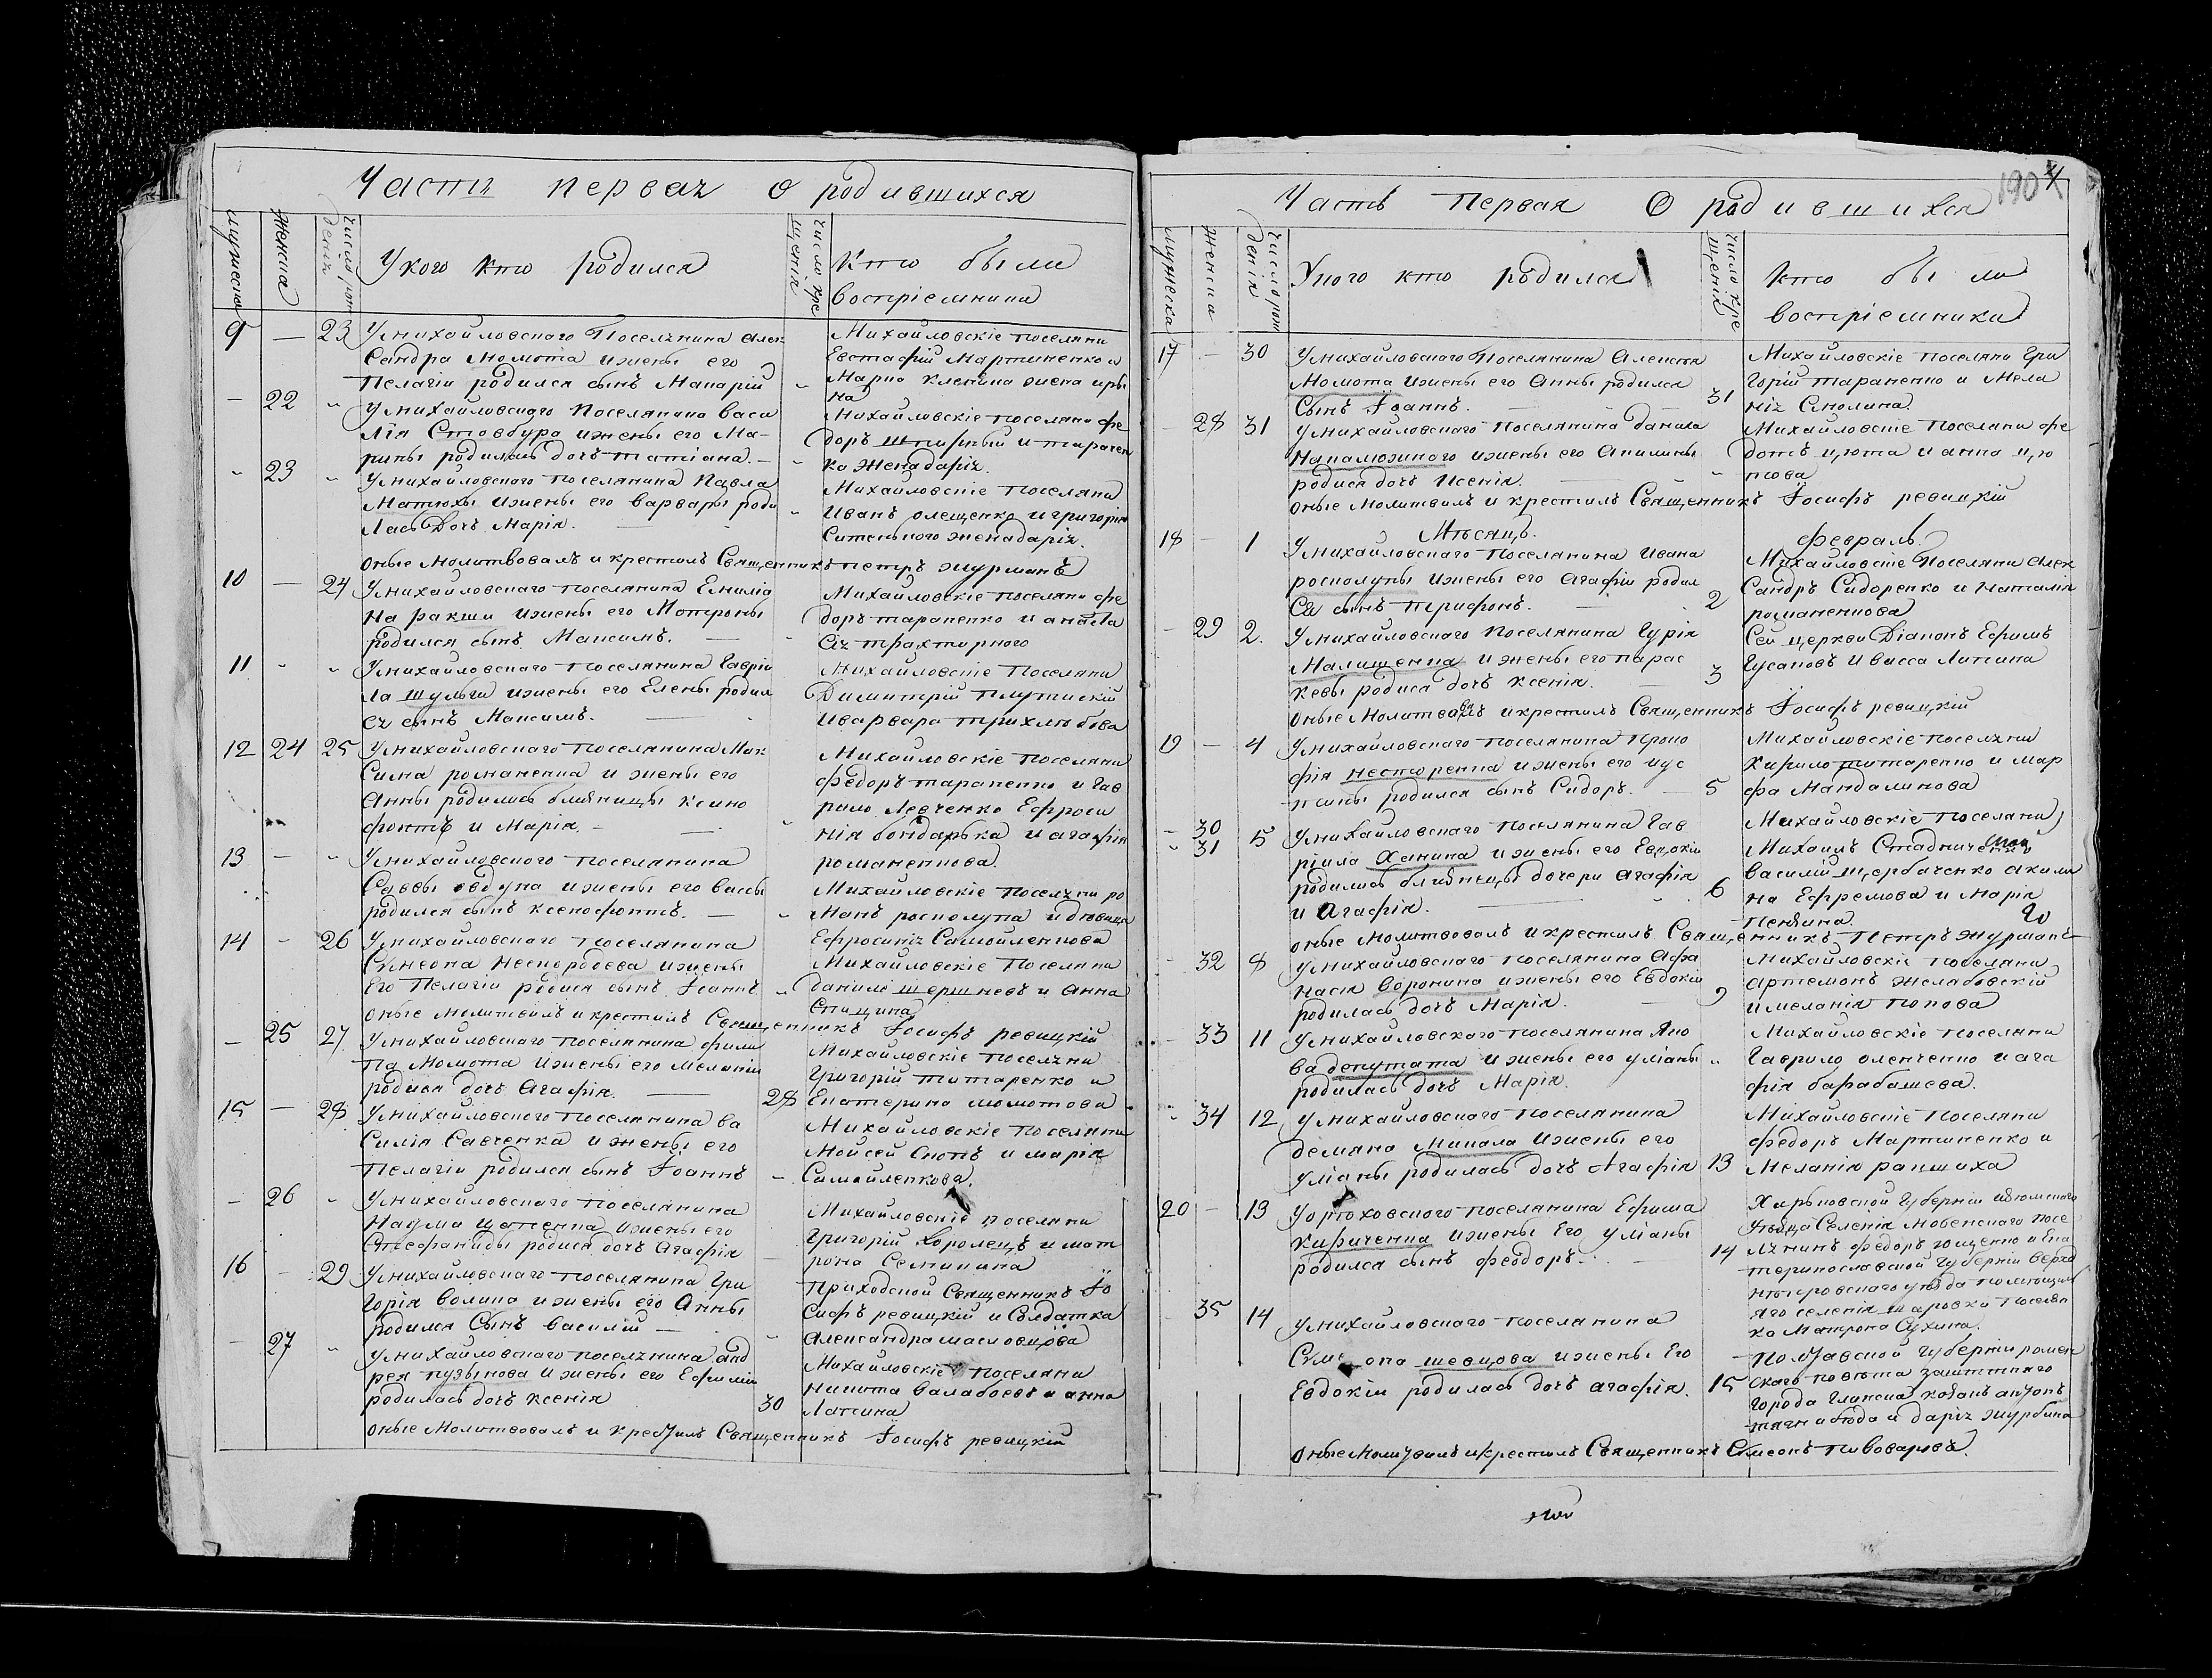 Часть первая о родившихся
мужеска
женска
число рож
денія
У кого кто родился
число кре
щенія
Кто были
воспріемники
9 — 23 У михайловскаго Поселянина Алек
сандра Момота и жены его
Пелагіи родился сынъ Макарій
Михайловскіе поселяни
Евстафій Мартиненко и
Марна
на
— 22 " У михайловскаго Поселянина васи
лія Стовбура и жены его Ма-
рины родилась дочь татіана. —
Михайловскіе поселяни фе
доръ и тарачен
ка жена дарія.
" 23 " У михайловскаго поселянина Павла
Матюхи и жены его варвары роди
лась Дочь Марія.
Михайловскіе поселяни
Иванъ олещенко и григорія
Ситенького жена дарія.
оные Молитвовалъ и крестилъ Священникъ петръ журманъ
10 — 24 У михайловскаго поселянина Емиліа
на ракши и жены его Мотроны
родился сынъ Максимъ. —
Михайловскіе поселяни фе
доръ тараненко и
трахтирного
11 " " У михайловскаго поселянина Гавріи
ла шульги и жены его Елены родил
ся сынъ Максимъ.
Михайловскіе поселяни
Димитрій
и варвара трихлѣбова
12 24 25 У михайловскаго поселянина Мак
сима романенка и жены его
Анны родились близницы ксено
фонтъ и Марія. —
Михайловскіе поселяни
федоръ тараненко и гав
рило Левченко Ефроси
нія бондарька и агафія
романенкова.
13 — " У михайловскаго поселянина
Саввы и жены его вассы
родился сынъ ксенофонтъ. —
Михайловскіе поселяни ро
манъ росколупа и вдовица
Ефросинія Самойленкова
14 — 26 У михайловскаго поселянина
Сумеона и жены
его Пелагіи родися сынъ Іоаннъ
Михайловскіе поселяни
данило шершневъ и Анна
Спицина
оные молитвилъ и крестилъ Священникъ Іосифъ ревицкій
— 25 27 У михайловскаго поселянина фили
па Момота и жены его меланіи
родися дочь Агафія. — 28
Михайловскіе поселяни
Григорій титаренко и
Екатерина момотова
15 — 28 У михайловскаго поселянина ва
силія Савченка и жены его
Пелагіи родился сынъ Іоаннъ
Михайловскіе поселяни
Мойсей Снопъ и марія
Самойленкова.
— 26 " У михайловскаго поселянина
Наума и жены его
Стефаниды родися дочь агафія
Михайловскіе поселяни
Григорій Королецъ и мат
рона Семикина
16 — 29 У михайловскаго поселянина Гри
горія Волика и жены его Анны
родился Сынъ василій —
Приходской Священникъ Іо
сифъ ревицкій и Солдатка
Александра масловцова
— 27 " У михайловскаго поселянина анд
рея пузынова и жены его Ефиміи
родилась дочь ксенія 30
Михайловскіе поселяни
никита балабоевъ и анна
Лапкина
оные Молитвовалъ и крестилъ Священникъ Іосифъ ревицкій
190
Часть Первая О родившихся
мужеска
женска
число рож
денія
У кого кто родился
число кре
щенія
кто были
воспріемники
17 — 30 У михайловскаго Поселянина Алексея
Момота и жены его Анны родился
Сынъ Іоаннъ. 31
Михайловскіе поселяни Гри
горій тараненко и мела
нія Смолина.
— 28 31 У михайловскаго Поселянина данила
и жены его Акилины
родися дочь Ксенія.
Михайловскіе Поселяни фе
дотъ цюпа и анна цю
пова
оные Молитвилъ и крестилъ Священникъ Іосифъ ревицкій
Мѣсяцъ февраль.
18 — 1 У михайловскаго поселянина Ивана
росколупы и жены его Агафіи родил
ся сынъ трифонъ. 2
Михайловскіе Поселяни Алек
сандръ Сидоренко и Наталія
романенкова
— 29 2. У михайловскаго Поселянина Гурія
Малишенка и жены его парас
кевы родися дочь ксенія. 3
Сей церкви Діаконъ Ефимъ
Гусаковъ и васса Липкина
оные Молитвовалъ и крестилъ Священникъ Іосифъ ревицкій
19 — 4 У михайловскаго поселянина Проко
фія нестеренка и жены его иус
тины родился сынъ Сидоръ. — 5
Михайловскіе поселяни
Кирило титаренко и мар
фа Мандаликова
— 30
" 31 5 У михайловскаго поселянина Гав
ріила Ханина и жены его Евдокіи
родились близнецы дочери агафія
и Агафія. 6
Михайловскіе поселяни
Михаилъ
василій щербаченко акили
на Ефремова и Марія
оные Молитвовалъ и крестилъ Священникъ Петръ журманъ
— 32 8 У михайловскаго поселянина Афа
насія воронина и жены его Евдокіи
родилась дочь Марія. 9
Михайловскіе поселяни
артемонъ желабовскій
и меланія попова
— 33 11 У михайловскаго поселянина Яко
ва депутата и жены его уліаны "
родилась дочь Марія.
Михайловскіе поселяни
Гаврило оленченко и ага
фія барабашева.
" 34 12 У михайловскаго поселянина
демяна Микала и жены его
уліаны родилась дочь Агафія 13
Михайловскіе поселяни
федоръ Мартиненко и
Меланія ракшиха
20 — 13 У орѣховского поселянина Ефима
Кириченка и жены Его уліаны
родился сынъ феодоръ. 14
Харьковской Губерніи изюмского
Уѣзда Селенія посе
лянинъ федоръ ющенко и Ека
теринославской Губерніи верхо
днѣпровского уѣзда
селенія шаровки посел
ка Матрона Сухина.
35 14 У михайловскаго поселянина
Сумеона шевцова и жены Его
Евдокіи родилась дочь агафія. 15
Полтавской Губерніи ромен
скаго повѣта заштатнаго
города Глинска козакъ антонъ
и дарія журбина
оные Молитвилъ и крестилъ Священникъ Сумеонъ пивоваровъ.